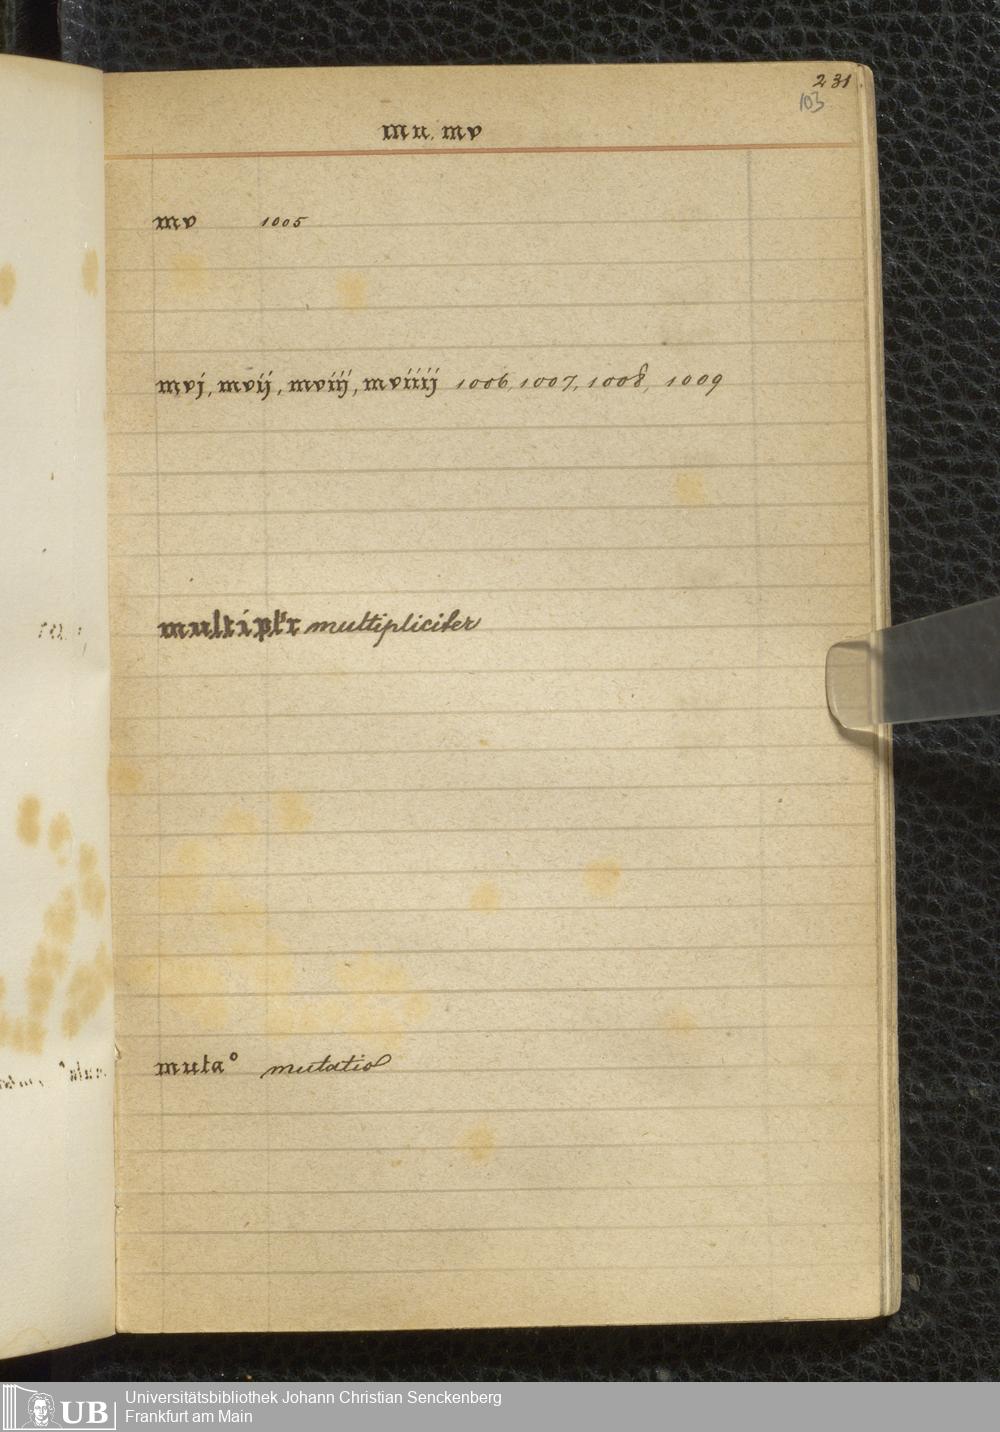 231
103
mu. mv
mv 1005
mvj, mvij, mviij, mviiij 1006, 1007, 1008, 1009
multiplr multipliciter
muta° mutatio
UB Universitätsbibliothek Johann Christian Senckenberg
Frankfurt am Main